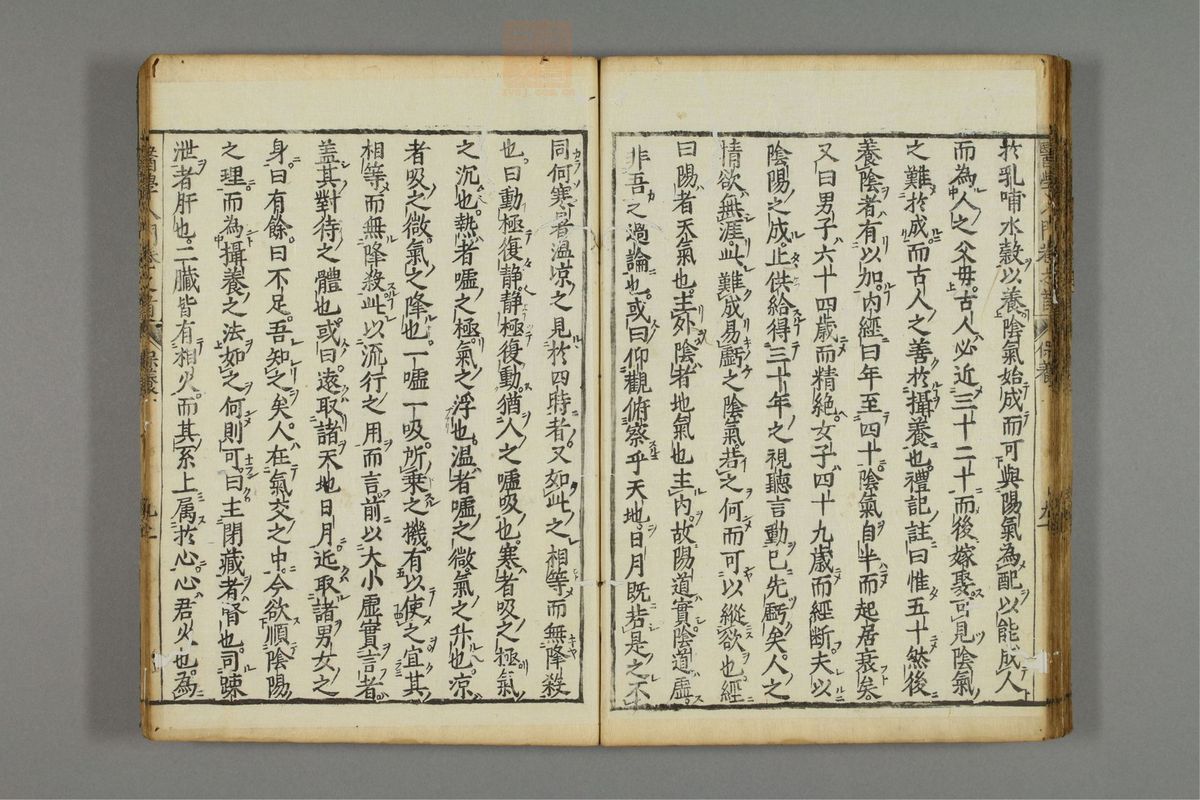 於乳哺水穀以養陰氣始成而可與陽氣為配以能成人
而為人之父母古人必近三十二十而後嫁娶可見陰氣
之難於成而古人之善於攝養也禮記註曰惟五十然後
養陰者有以加內經曰年至四十陰氣自半而起居衰矣
又曰男子六十四歲而精絕女子四十九歲而經断夫以
陰陽之成止供給得三十年之視聽言動已先虧矣人之
情欲無涯此難成易虧之陰氣若之何而可以縱欲也經
曰陽者天氣也主外陰者地氣也主內故陽道實陰道虛
非吾之過論也或曰仰觀俯察乎天地日月既若是之不
同何寒暑溫凉之見於四時者又如此之相等而無降殺
也曰動極復静静極復動猶人之噓吸也寒者吸之極氣
之沉也熱者噓之極氣之浮也温者噓之微氣之升也凉
者吸之微氣之降也一噓一吸所乗之機有以使之宜其
相等而無降殺此以流行之用而言前以大小虛實言者
盖其對待之體也或曰遠取諸天地日月近取諸男女之
身曰有餘曰不足吾知之矣人在氣交之中今欲順陰陽
之理而為攝養之法如之何則可曰主閉藏者腎也司踈
泄者肝也二臟皆有相火而其系上属於心心君火也為